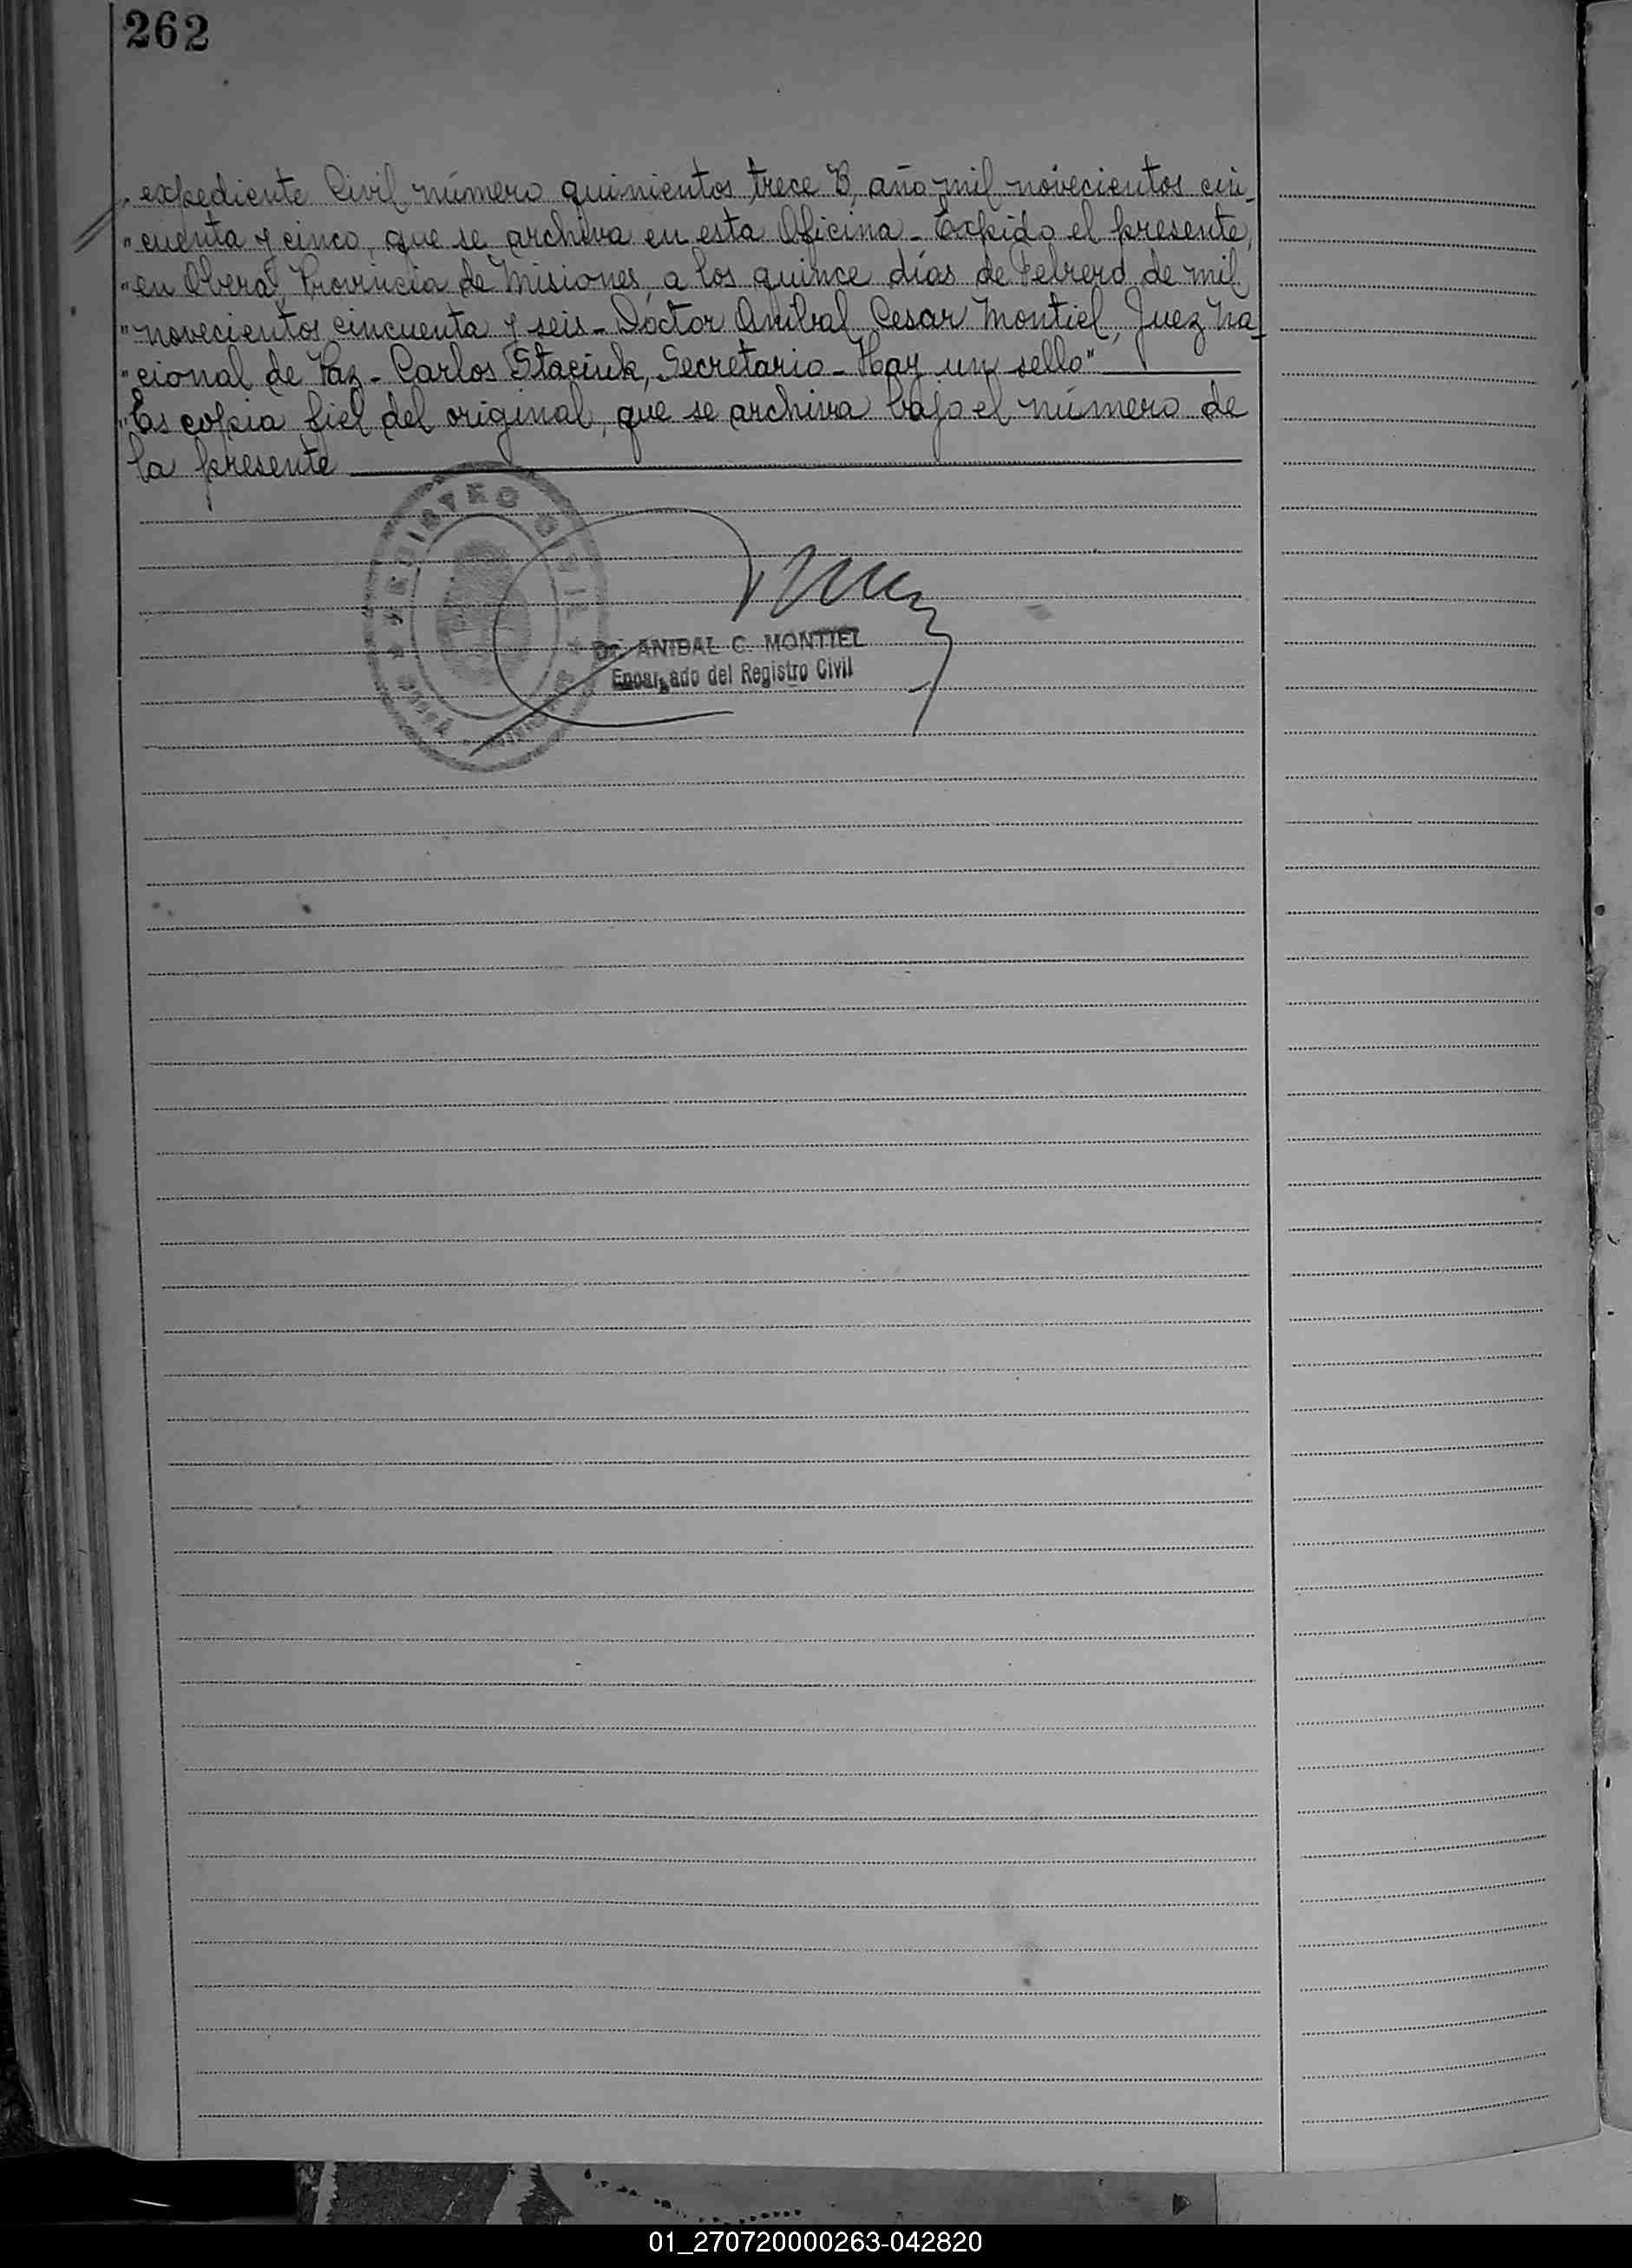 262
"expediente Civil número quinientos trece B, año mil novecientos cin-
"cuenta y cinco, que se archiva en esta Oficina - Expido el presente,
"en Oberá, Provincia de Misiones, a los quince días de Febrero de mil
"novecientos cincuenta y seis - Doctor Anibal Cesar Montiel, Juez Na-
"cional de Paz - Carlos Staciuk, Secretario - Hay un sello"
"Es copia fiel del original, que se archiva bajo el número de
la presente
REGISTRO CIVIL
Dr. ANIBAL C. MONTIEL
Encargado del Registro Civil
01_270720000263-042820